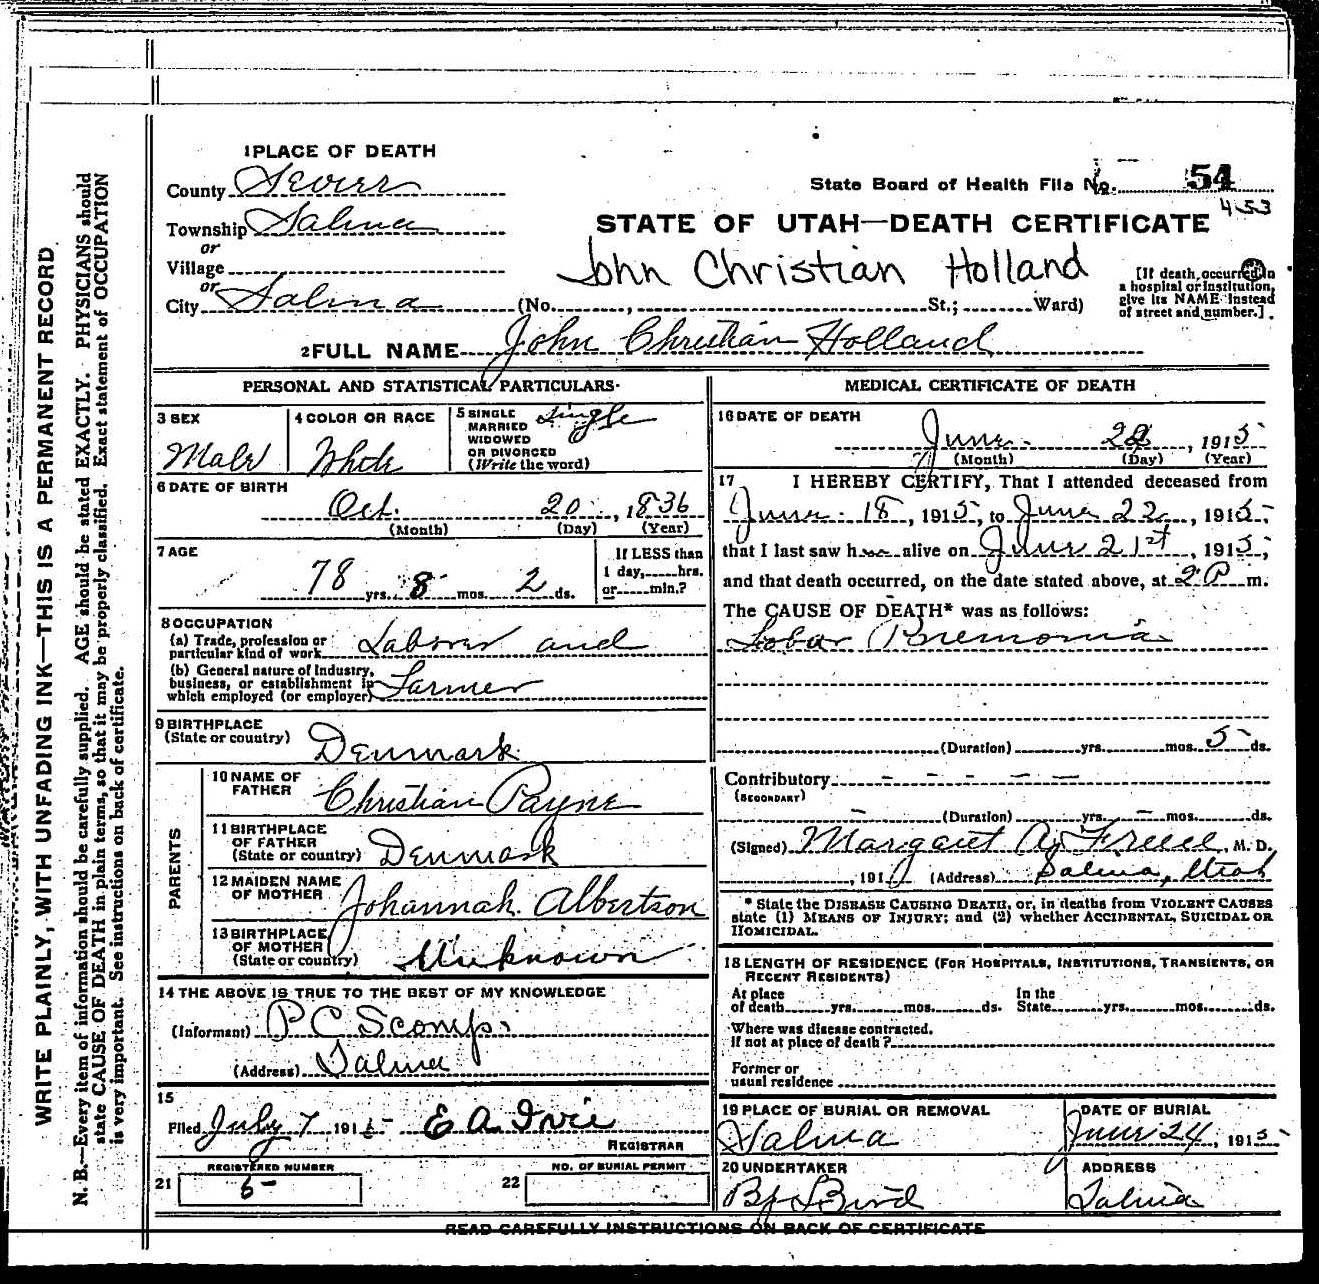 WRITE PLAINLY, WITH UNFADING INK—THIS IS A PERMANENT RECORD
N. B.—Every item of information should be carefully supplied. AGE should be stated EXACTLY. PHYSICIANS should
state CAUSE OF DEATH in plain terms, so that it may be properly classified. Exact statement of OCCUPATION
is very important. See instructions on back of certificate.
1 PLACE OF DEATH
County Sevier
State Board of Health File No. 54
453
Township Salina
STATE OF UTAH—DEATH CERTIFICATE
or
Village
John Christian Holland
or
City Salina (No. , St.; Ward)
[If death occurred in
a hospital or institution,
give its NAME instead
of street and number.]
2 FULL NAME John Christian Holland
PERSONAL AND STATISTICAL PARTICULARS
3 SEX
Male
4 COLOR OR RACE
White
5 SINGLE
MARRIED
WIDOWED
OR DIVORCED
(Write the word)
Single
6 DATE OF BIRTH
Oct. 20, 1836
(Month) (Day) (Year)
7 AGE
78 yrs. 8 mos. 2 ds.
If LESS than
1 day, hrs.
or min.?
8 OCCUPATION
(a) Trade, profession or
particular kind of work Laborer and
(b) General nature of industry,
business, or establishment in
which employed (or employer) Farmer
9 BIRTHPLACE
(State or country) Denmark
PARENTS
10 NAME OF
FATHER Christian Payne
11 BIRTHPLACE
OF FATHER
(State or country) Denmark
12 MAIDEN NAME
OF MOTHER Johannah Albertson
13 BIRTHPLACE
OF MOTHER
(State or country) Unknown
14 THE ABOVE IS TRUE TO THE BEST OF MY KNOWLEDGE
(Informant) P C Scorup
(Address) Salina
15
Filed July 7 1915 E A Ivie
REGISTRAR
REGISTERED NUMBER
21 5
NO. OF BURIAL PERMIT
22
MEDICAL CERTIFICATE OF DEATH
16 DATE OF DEATH
June 22, 1915
(Month) (Day) (Year)
17 I HEREBY CERTIFY, That I attended deceased from
June 18, 1915, to June 22, 1915,
that I last saw him alive on June 21st, 1915,
and that death occurred, on the date stated above, at 2 P m.
The CAUSE OF DEATH* was as follows:
Lobar Pnemonia
(Duration) yrs. mos. 5 ds.
Contributory
(SECONDARY)
(Duration) yrs. mos. ds.
(Signed) Margaret A. Freece, M. D.
, 191 (Address) Salina, Utah
* State the DISEASE CAUSING DEATH, or, in deaths from VIOLENT CAUSES
state (1) MEANS OF INJURY; and (2) whether ACCIDENTAL, SUICIDAL OR
HOMICIDAL.
18 LENGTH OF RESIDENCE (FOR HOSPITALS, INSTITUTIONS, TRANSIENTS, OR
RECENT RESIDENTS)
At place
of death yrs. mos. ds.
In the
State yrs. mos. ds.
Where was disease contracted,
If not at place of death?
Former or
usual residence
19 PLACE OF BURIAL OR REMOVAL
Salina
DATE OF BURIAL
June 24, 1915
20 UNDERTAKER
Bird
ADDRESS
Salina
READ CAREFULLY INSTRUCTIONS ON BACK OF CERTIFICATE